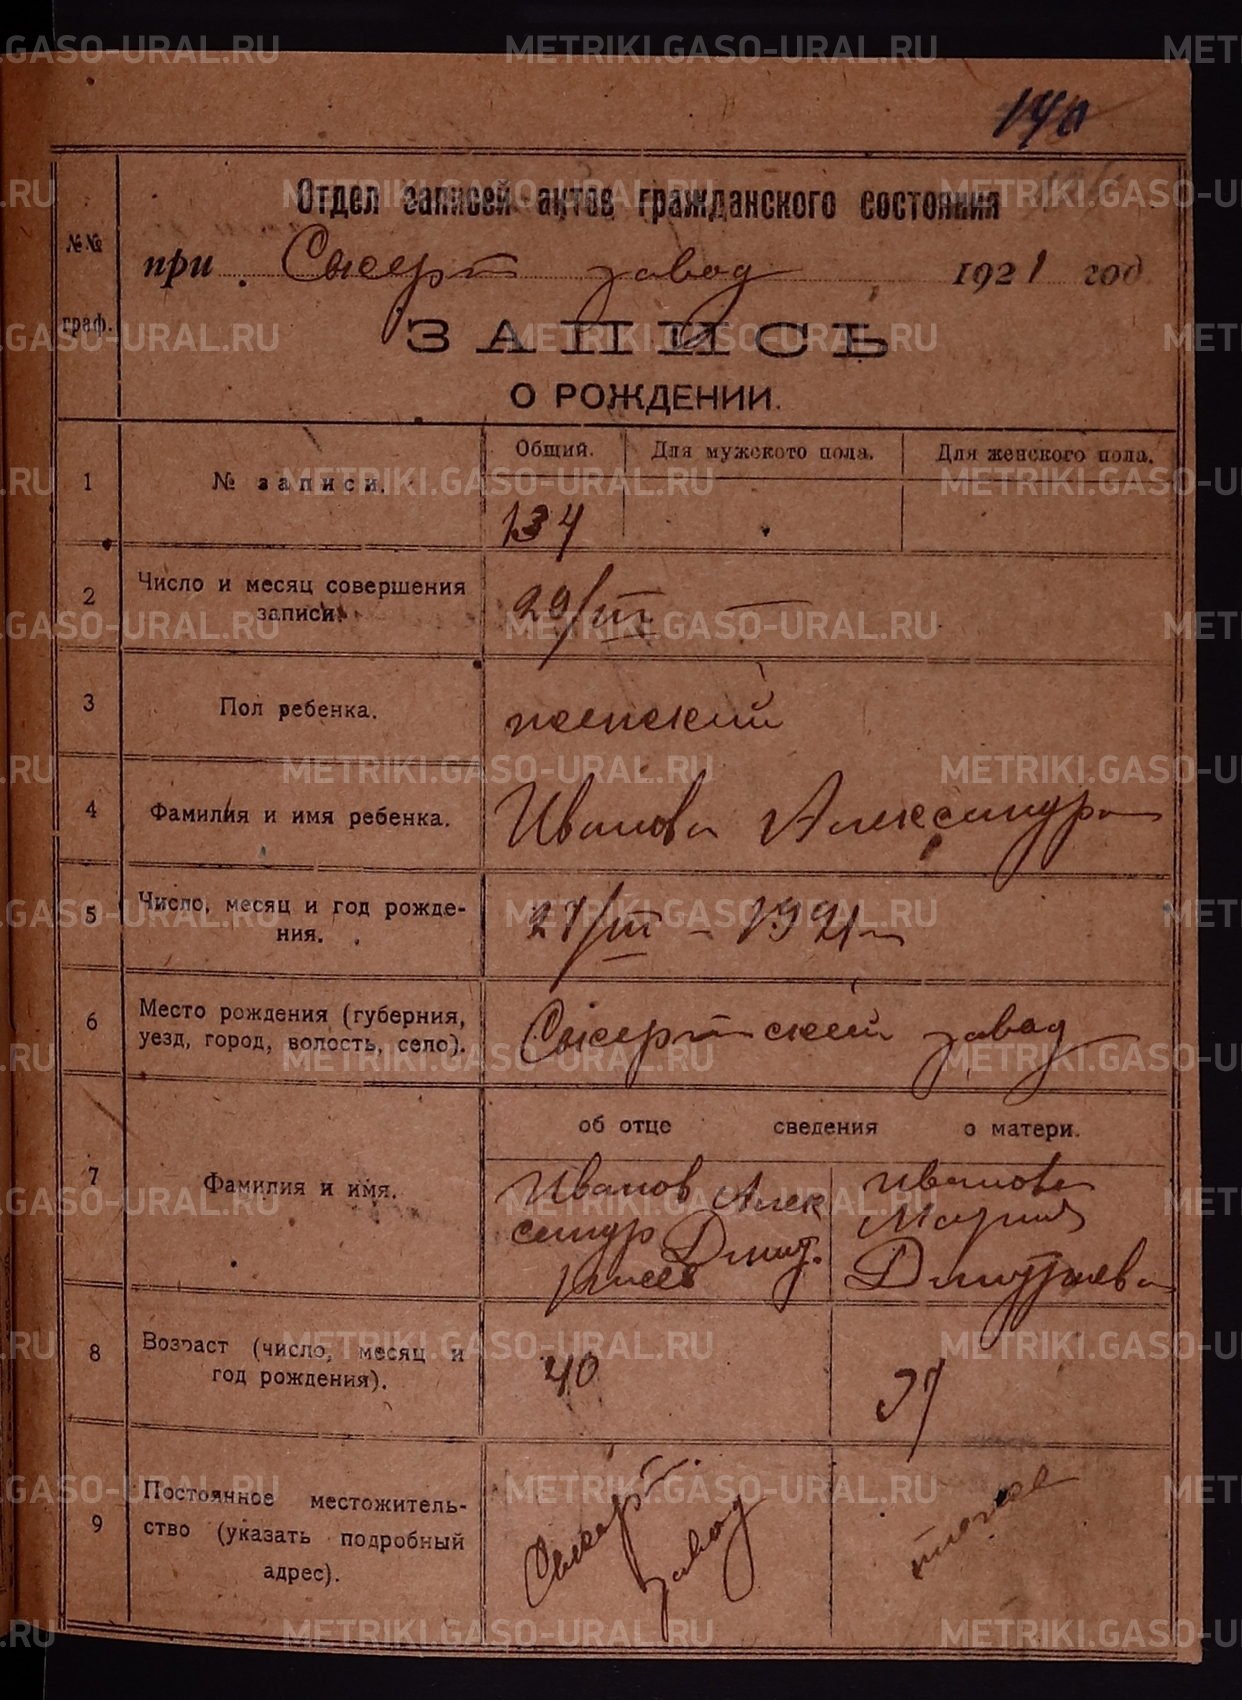 140
Отдел записей актов гражданского состояния
№№ граф.
при Сысерт завод 1921 год
ЗАПИСЬ
О РОЖДЕНИИ.
Общий. Для мужского пола. Для женского пола.
1 № записи. 134
2 Число и месяц совершения
записи. 29/III —
3 Пол ребенка. женский
4 Фамилия и имя ребенка. Иванова Александра
5 Число, месяц и год рожде-
ния. 27/III – 1921 г
6 Место рождения (губерния,
уезд, город, волость, село). Сысертский завод
об отце сведения о матери.
7 Фамилия и имя.
Иванов Алек
сандр Дмит.
риев
Иванова
Мария
Дмитриева
8 Возраст (число, месяц и
год рождения). 40 37
9 Постоянное местожитель-
ство (указать подробный
адрес).
Сысерт
завод
тоже
METRIKI.GASO-URAL.RU